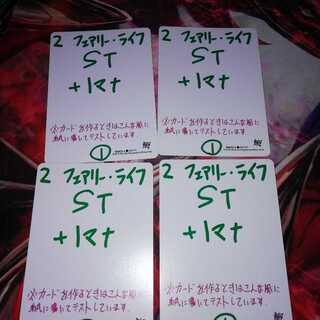 2 フェアリー・ライフ
ST
+1マナ
※カードを作るときはこんな風に
紙に書いてテストしています。
1
2 フェアリー・ライフ
ST
+1マナ
※カードを作るときはこんな風に
紙に書いてテストしています。
1
2 フェアリー・ライフ
ST
+1マナ
※カードを作るときはこんな風に
紙に書いてテストしています。
1
2 フェアリー・ライフ
ST
+1マナ
※カードを作るときはこんな風に
紙に書いてテストしています。
1